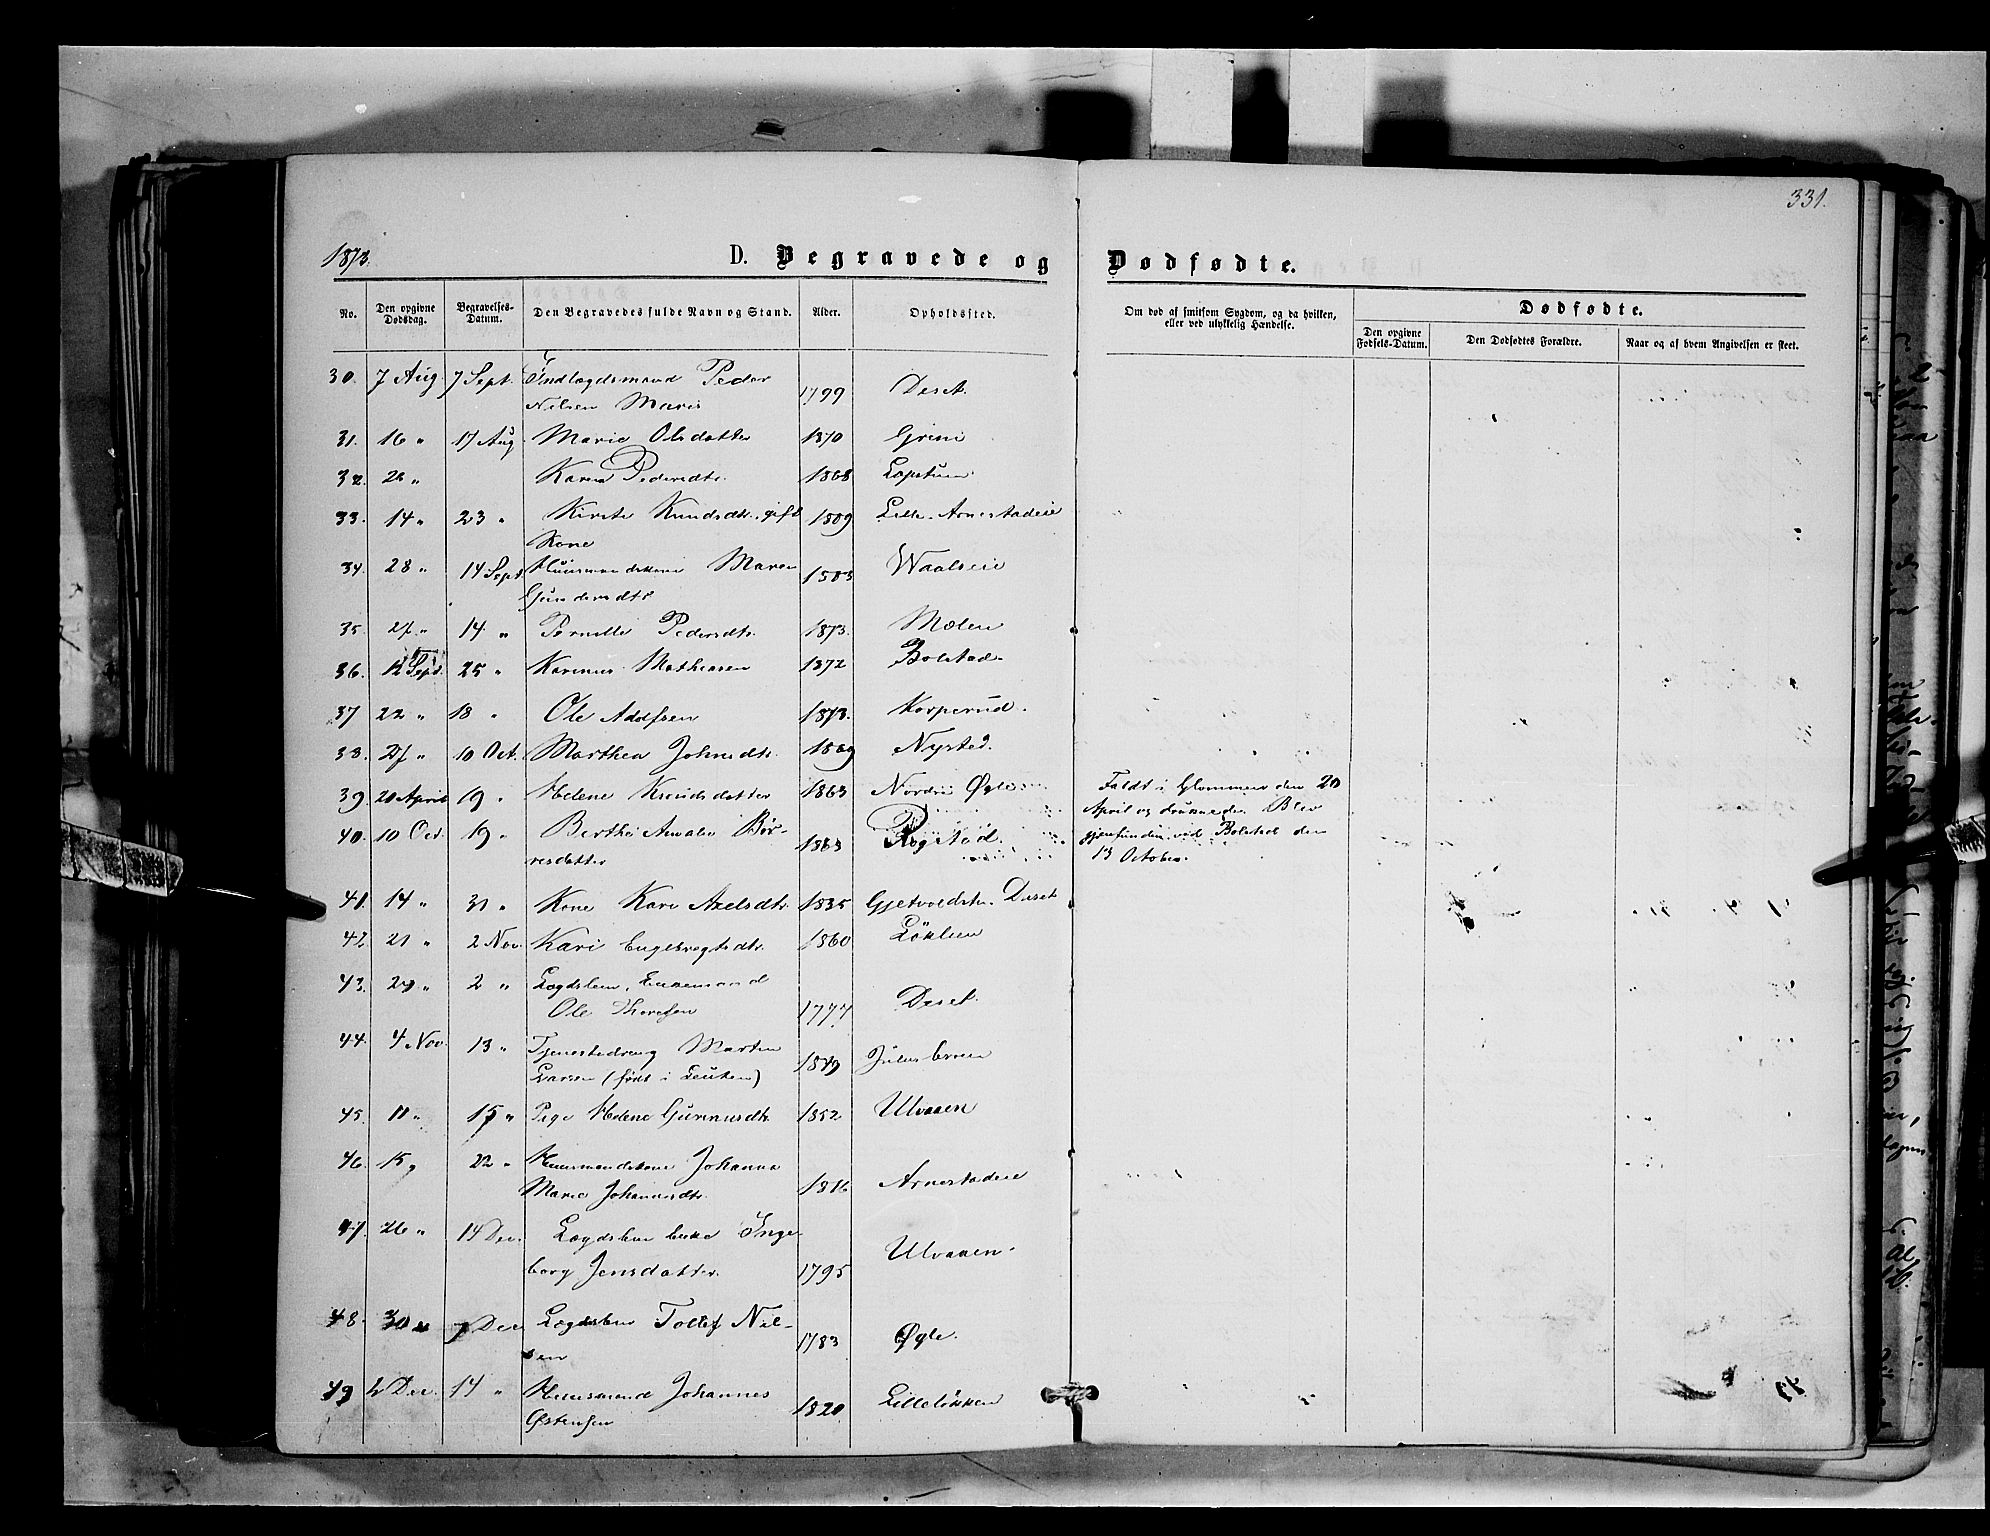 331.
1873. D. Begravede og Dødfødte.
No. Den opgivne Dødsdag. Begravelses-Datum. Den Begravedes fulde Navn og Stand. Alder. Opholdssted. Om død af smitsom Sygdom, og da hvilken, eller ved ulykkelig Hændelse. Dødfødte.
Den opgivne Fødsels-Datum. Den Dødfødtes Forældre. Naar og af hvem Angivelsen er skeet.
30. 7 Aug. 7 Sept. Indlægdsmand Peder
Nilsen Maris 1799 Deset.
31. 16 " 17 Aug. Marie Olsdatter 1870 Grini
32. 20 " Karen Pedersdtr. 1868 Løpstuen
33. 14 " 23 " Kirsti Knudsdtr. gift
Kone 1809 Lille-Arnestadeie
34. 28 " 14 Sept. Huusmandskone Maren
Gundersdtr 1803 Waalseie
35. 27 " 14 " Pernille Pedersdtr. 1873. Mælen
36. 12 Sept. 25 " Karinus Mathiesen 1872 Bolstad
37 22 " 18 " Ole Adolfsen 1873. Korperud.
38. 27 " 10 Oct. Marthea Johnsdtr. 1869 Nysted.
39. 20 April 19 " Helene Knudsdatter 1863 Nordre Øgle Faldt i Glommen den 20
April og druknede. Blev
gjenfunden ved Bolstad den
13 October.
40. 10 Oct. 19 " Berthe Amalie Bør-
resdatter 1863 Rogstad.
41. 14 " 31 " Kone Kari Axelsdtr. 1835 Gjetvoldstu. Deset
42. 21 " 2 Nov. Kari Engebregtsdtr. 1860 Løkken
43. 29 " 2 " Lægdslem, Enkemand
Ole Thoresen 1777 Deset.
44. 4 Nov. 13 " Tjenestedreng Martin
Larsen (født i Leuten) 1849 Julusbroen
45. 11 " 15 " Pige Helene Gunnarsdtr. 1852 Ulvaaen
46. 15 " 22 " Huusmandskone Johanna
Marie Johannesdtr. 1816 Arnestadeie
47. 26 " 14 Dec. Lægdslem Enke Inge-
borg Jensdatter. 1795 Ulvaaen.
48. 30 " 7 Dec Lægdslem Tollef Nil-
sen 1783 Øgle.
49 2 Dec. 14 " Huusmand Johannes
Østensen 1820 Lilleløkken